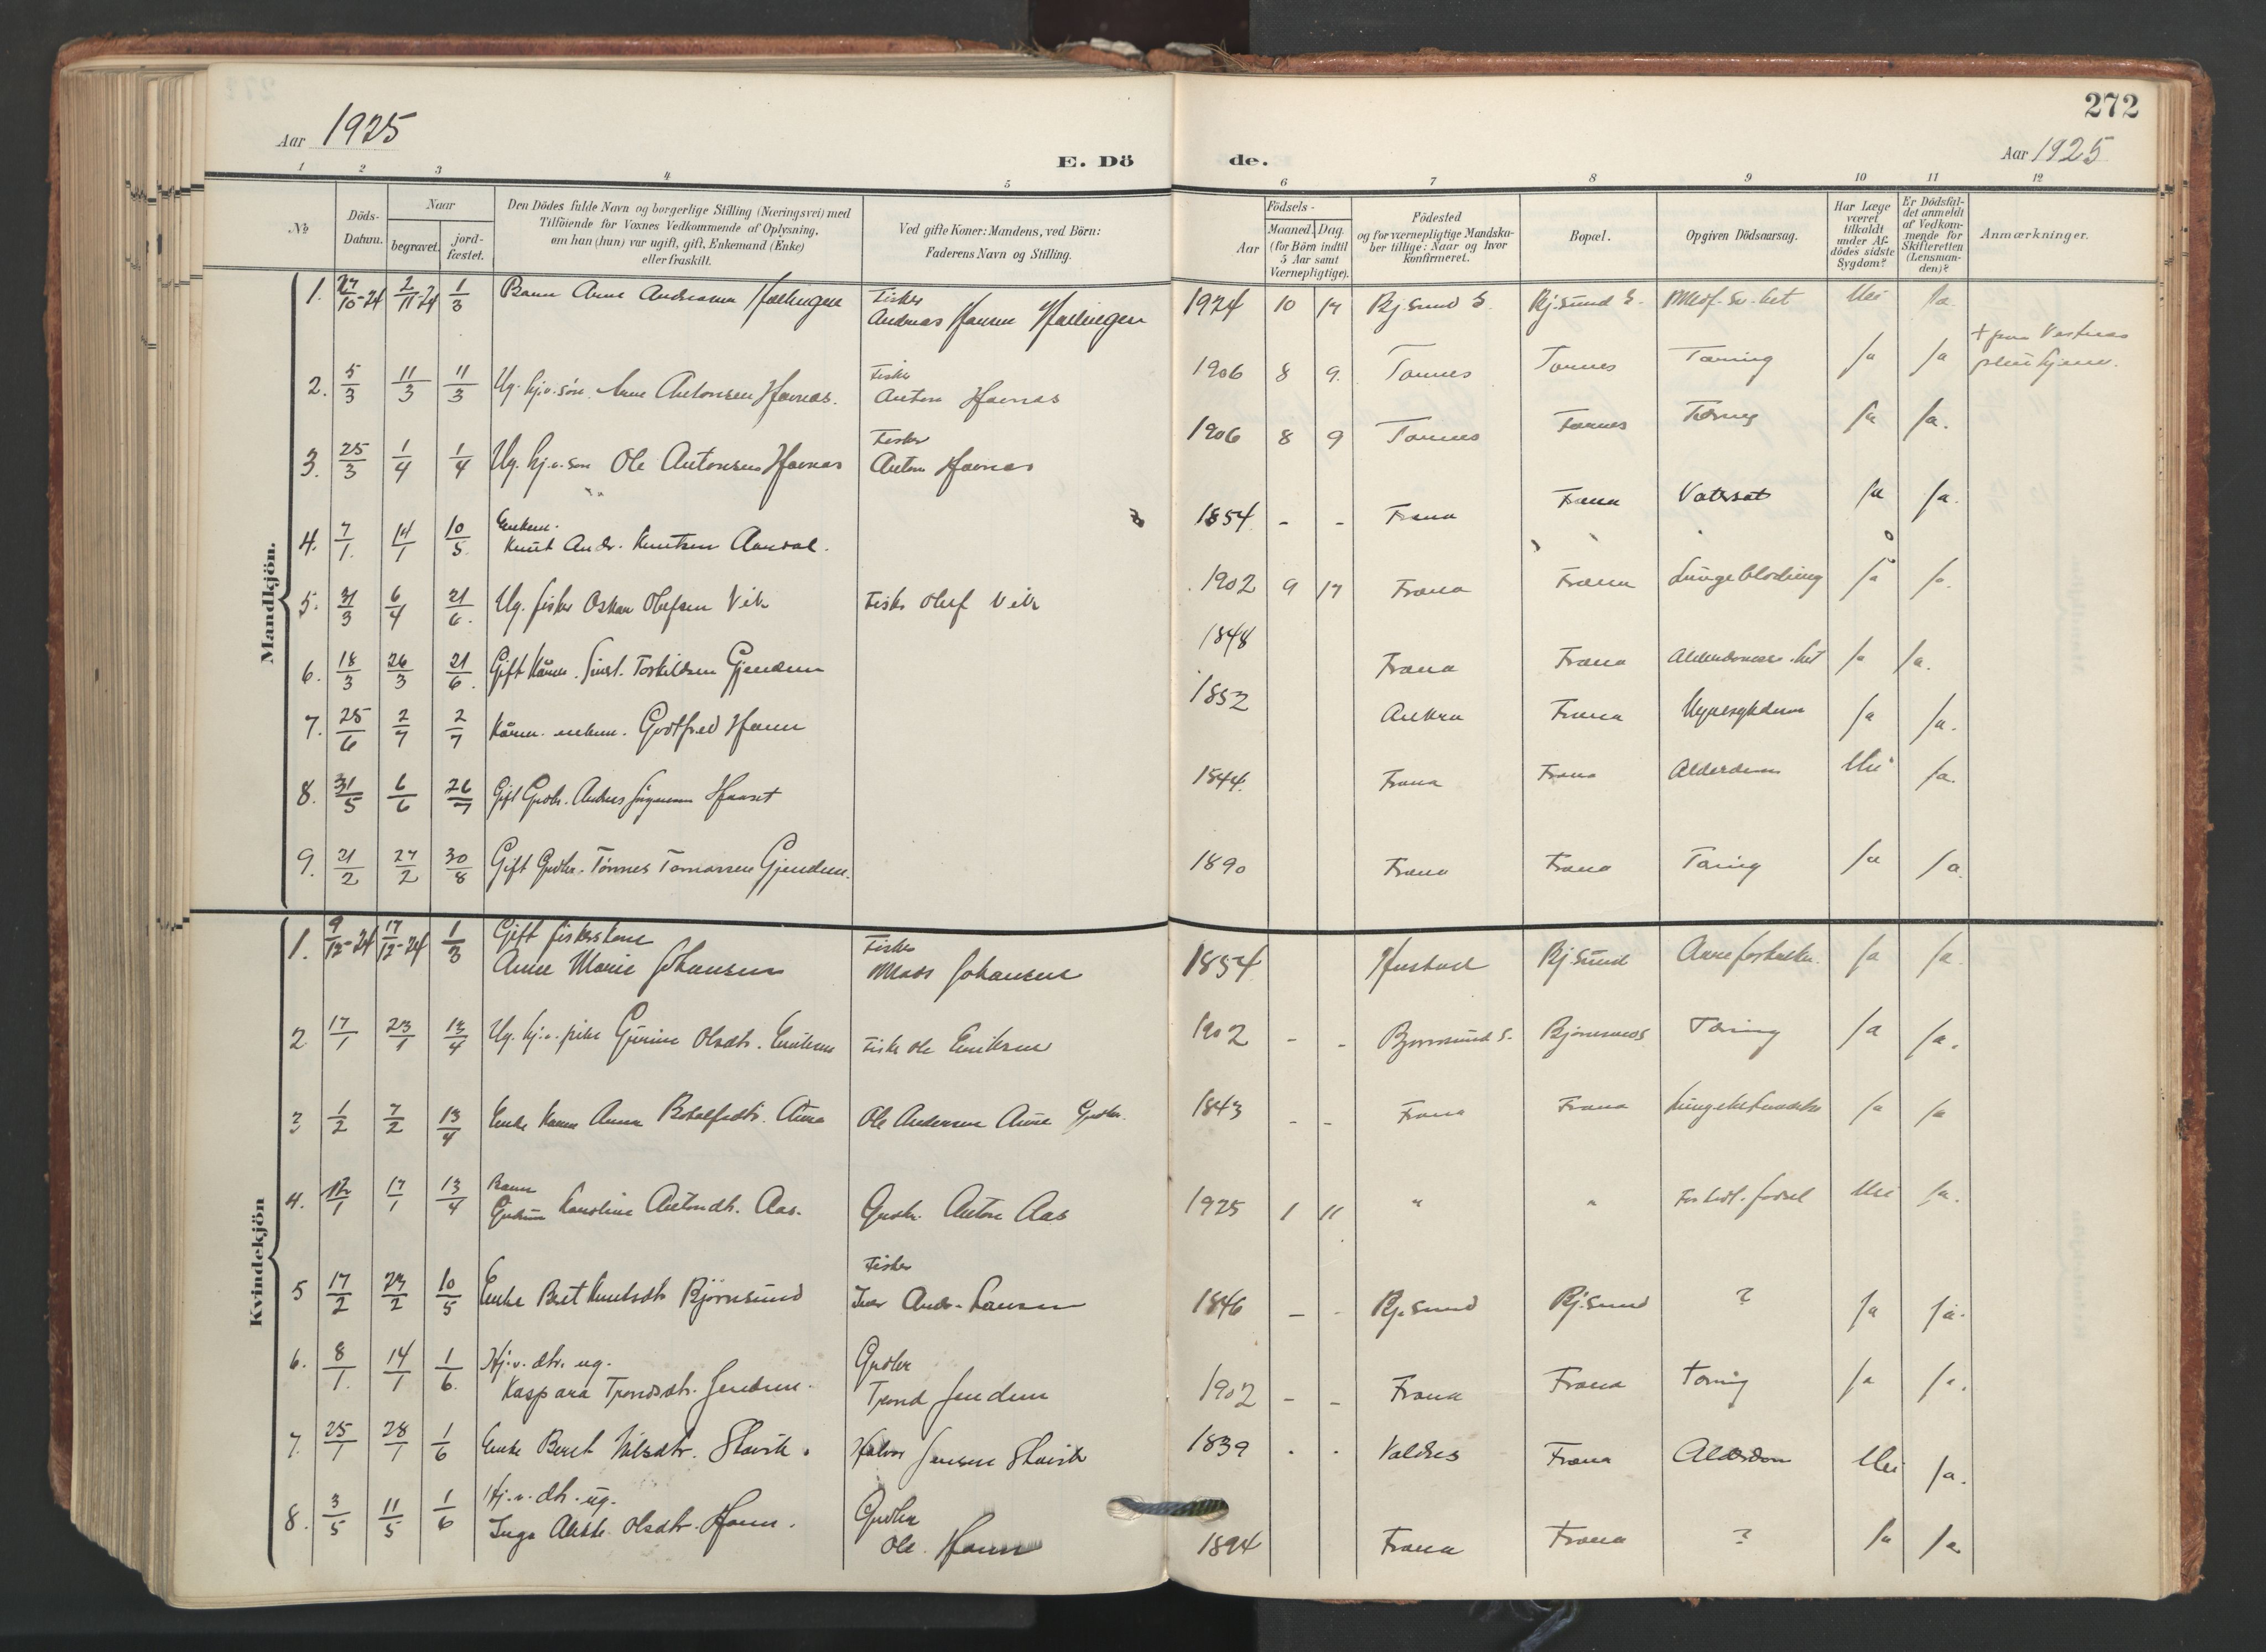 272
Aar 1925
Aar 1925
E. Dö
de.
1 2 3 4 5 6 7 8 9 10 11 12
№
Döds-
Datum.
Naar
begravet.
jord-
fæstet.
Den Dödes fulde Navn og borgerlige Stilling (Næringsvei) med
Tilföiende for Voxnes Vedkommende af Oplysning,
om han (hun) var ugift, gift, Enkemand (Enke)
eller fraskilt.
Ved gifte Koner: Mandens, ved Börn:
Faderens Navn og Stilling.
Födsels-
Aar
Maaned. Dag.
(for Börn indtil
5 Aar samt
Værnepligtige).
Födested
og for værnepligtige Mandska-
ber tillige: Naar og hvor
konfirmeret.
Bopæl.
Opgiven Dödsaarsag.
Har Læge
været
tilkaldt
under Af-
dödes sidste
Sygdom?
Er Dödsfal-
det anmeldt
af Vedkom-
mende for
Skifteretten
(Lensman-
den)?
Anmærkninger.
Mandkjön.
1. 27/10-24 2/11-24 1/3 Barn Arne Andreassen Hallingen Fisker Andreas Hansen Hallingen 1924 10 17 Bj.sund S. Bj.sund S. Nei Ja
2. 5/3 11/3 11/3 Ug. hj.v. søn Arne Antonsen Havnås. Fisker Anton Havnås 1906 8 9. Tornes Tornes Tæring Ja Ja
3. 25/3 1/4 1/4 Ug. hj.v. søn Ole Antonsen Havnås Fisker Anton Havnås 1906 8 9 Tornes Tornes Tæring Ja Ja.
4. 7/1. 14/1 10/5. Enkem. Knut Andr. Knutsen 1854 - - Fræna Fræna Vatersot Ja Ja.
5. 31/3 6/4 21/6. Ug. fisker Oskar Olufsen Vik Fisker Oluf Vik 1902 9 17 Fræna Fræna Lungeblødning Ja Ja.
6. 18/3 26/3 21/6. Gift Kårm. Torkildsen Gjendem 1848 Fræna Fræna Ja Ja.
7. 25/6 2/7 2/7 Kårm. enkem. Godtfred 1852 Aukra Fræna Nyresykdom Ja Ja.
8. 31/5 6/6 26/7 Gift Grdbr. Anders 1844. Fræna Fræna Alderdom Nei Ja.
9. 21/2 27/2 30/8 Gift Grdbr. Tønnes Gjendem. 1890 Fræna Fræna Tæring Ja Ja.
Kvindekjön
1. 9/12-24 17/12-24 1/3 Gift fiskerkone Anne Marie Johansen Fisker Mads Johansen 1854 Hustad Bj.sund Ja Ja.
2 17/1 23/1 13/4 Ug. hj.v. pike Olsdtr. Eriksen Fisker Ole Eriksen 1902 - - Bjørnsund S. Tæring Ja Ja.
3 1/2 7/2 13/4 Enke Anna Aure Ole Andersen Aure Grdbr. 1843 - - Fræna Fræna Ja Ja
4. 12/1 17/1 13/4 Barn Gudrun Karoline Antondtr. Aas. Grdbr. Anton Aas 1925 1 11 " " For tidl. fødsel Nei Ja.
5 17/2 27/2 10/5 Enke Berit Knutsdtr Bjørnsund Fisker Iver Andr. Larsen 1846 - - Bj.sund Bj.sund ? Ja Ja.
6. 8/1. 14/1 1/6. Hj.v. dtr. ug. Kaspara Trondsdtr. Jendem. Grdbr Trond Jendem 1902 - - Fræna Fræna Tæring Ja Ja.
7. 25/1 28/1 1/6 Enke Beret Nilsdtr. Stavik. Halvor Jensen Stavik 1839 . . Valdres Fræna Alderdom Nei Ja.
8. 3/5 11/5 1/6 Hj.v. dtr. ug. Inga Olsdtr. Grdbr Ole 1894 Fræna Fræna ? Ja Ja